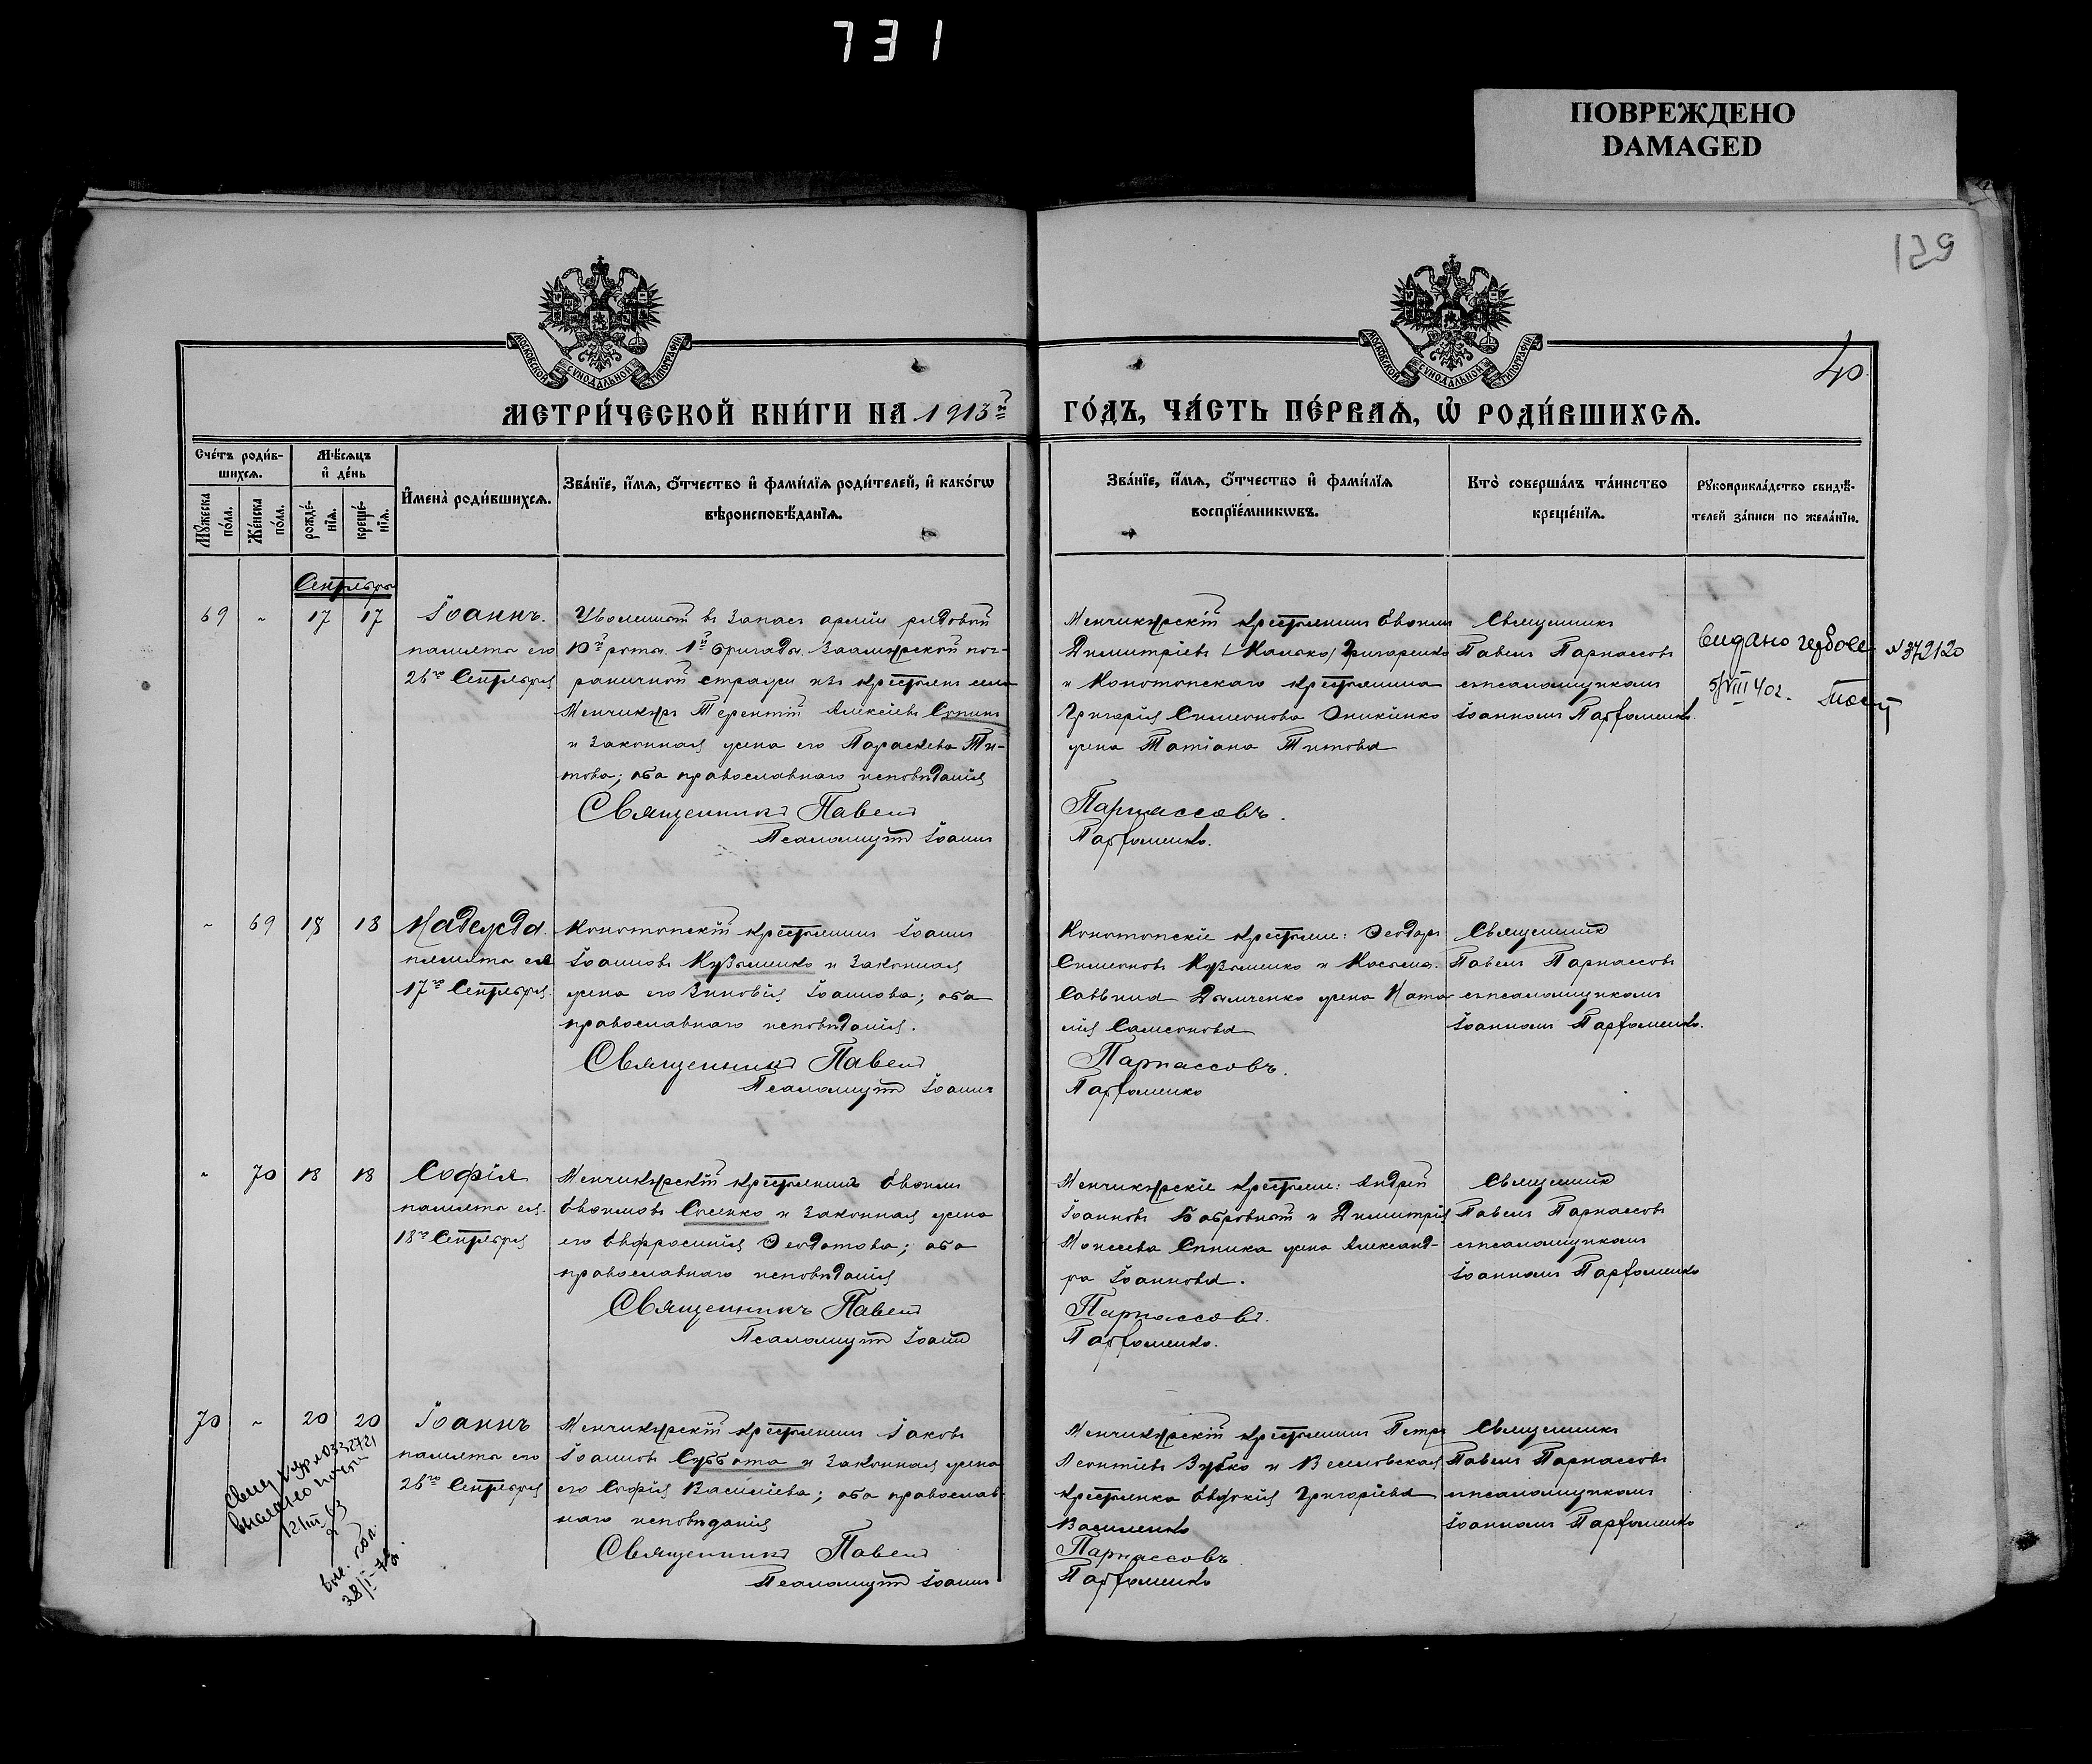 731
ПОВРЕЖДЕНО
DAMAGED
139
40
МОСКОВСКОЙ СѴНОДАЛЬНОЙ ТИПОГРАФІИ
МОСКОВСКОЙ СѴНОДАЛЬНОЙ ТИПОГРАФІИ
МЕТРИ́ЧЕСКОЙ КНИ́ГИ НА 1913й ГО́ДЪ, ЧА́СТЬ ПЕ́РВАѦ, Ѡ҆ РОДИ́ВШИХСѦ.
Сче́тъ роди́в-
шихсѧ.
Мꙋ́жеска по́ла.
Же́нска по́ла.
Мѣ́сѧцъ
и҆ де́нь
рожде́-
нїѧ.
креще́-
нїѧ.
И҆мена̀ роди́вшихсѧ.
Зва́нїе, и҆́мѧ, ѻ҆́тчество и҆ фами́лїѧ роди́телей, и҆ како́гѡ
вѣроисповѣ́данїѧ.
Зва́нїе, и҆́мѧ, ѻ҆́тчество и҆ фами́лїѧ
воспрїе́мникѡвъ.
Кто̀ соверша́лъ та́инство
креще́нїѧ.
Рꙋкоприкла́дство свидѣ́-
телей за́писи по жела́нїю.
Сентябрь
69 " 17 17
Іоаннъ.
память его
26го Сентября
Уволенный въ запасъ арміи рядовой
10й роты 1й бригады Заамурской пог-
раничной стражи изъ крестьянъ села
Менчикуръ Терентій Алексіевъ
и законная жена его Параскева Ти-
това; оба православнаго исповѣданія
Священникъ Павелъ
Псаломщикъ Іоаннъ
Менчикурскій крестьянинъ
Димитріевъ Григоренко
и Конотопскаго крестьянина
Григорія Симеонова Оникіенко
жена Татіана Титова
Парнассовъ.
Парфоменко.
Священникъ
Павелъ Парнассовъ
съ псаломщикомъ
Іоанномъ Парфоменко.
Видано гербове №372120
5/VIII 40г.
" 69 18 18
Надежда.
память ея
17го Сентября.
Конотопскій крестьянинъ Іоаннъ
Іоанновъ Кузьменко и законная
жена его Зиновія Іоаннова; оба
православнаго исповѣданія.
Священникъ Павелъ
Псаломщикъ Іоаннъ
Конотопскіе крестьяне: Ѳеодоръ
Симеоновъ Кузьменко и Косьмы
Саввина Дымченко жена Ната-
лія Самсонова
Парнассовъ.
Парфоменко
Священникъ
Павелъ Парнассовъ
съ псаломщикомъ
Іоанномъ Парфоменко.
" 70 18 18
Софія
память ея
18го Сентября
Менчикурскій крестьянинъ
Сысенко и законная жена
его Евфросинія Ѳеодотова; оба
православнаго исповѣданія
Священникъ Павелъ
Псаломщикъ Іоаннъ
Менчикурскіе крестьяне: Андрей
Іоанновъ Бобровный и Димитрія
Моисеева Спиика жена Александ-
ра Іоаннова.
Парнассовъ.
Парфоменко.
Священникъ
Павелъ Парнассовъ
съ псаломщикомъ
Іоанномъ Парфоменко
70 " 20 20
Іоаннъ
память его
26го Сентября
Менчикурскій крестьянинъ Іаковъ
Іоанновъ Суббота и законная жена
его Софія Василіева; оба православ-
наго исповѣданія
Священникъ Павелъ
Псаломщикъ Іоаннъ
Менчикурскій крестьянинъ Петръ
Леонтіевъ Зубко и Веселовская
крестьянка Евдокія Григоріева
Василенко
Парнассовъ.
Парфоменко
Священникъ
Павелъ Парнассовъ
съ псаломщикомъ
Іоанномъ Парфоменко
0332721
28/I-73.